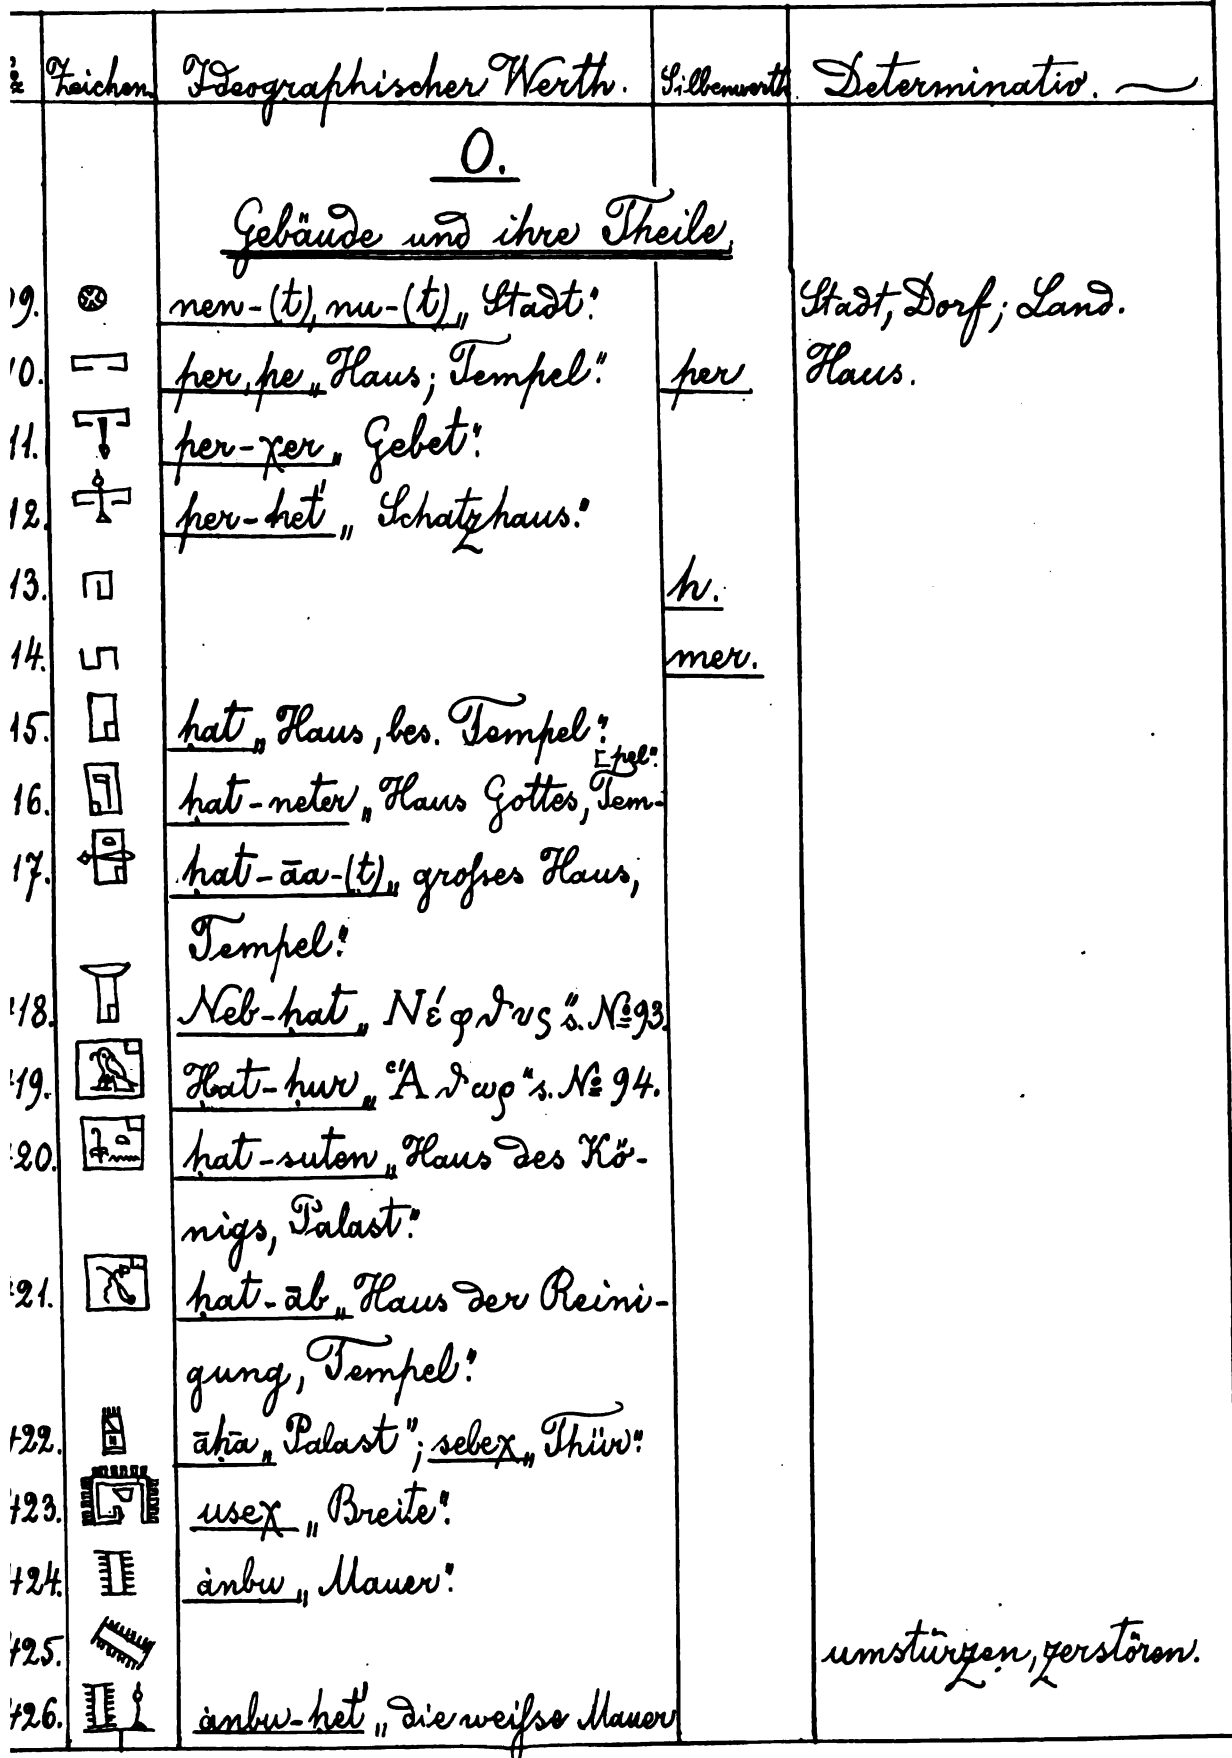 № Zeichen. Ideographischer Werth. Silbenwerth. Determinativ.
O.
Gebäude und ihre Theile.
09. nen-(t), nu-(t) „Stadt". Stadt, Dorf; Land.
10. per, pe „Haus; Tempel". per Haus.
11. per-χer „Gebet".
12. per-ḥet' „Schatzhaus."
13. h.
14. mer.
15. ḥat „Haus, bes. Tempel".
[pel".
16. ḥat-neter „Haus Gottes, Tem-
17. ḥat-āa-(t) „großes Haus,
Tempel".
418. Neb-ḥat „Νέφθυς" s. № 93.
419. Ḥat-ḥur „Ἅθωρ" s. № 94.
420. ḥat-suten „Haus des Kö-
nigs, Palast".
421. ḥat-āb „Haus der Reini-
gung, Tempel".
422. āḥā „Palast"; sebeχ „Thür".
423. useχ „Breite".
424. ȧnbu „Mauer".
425. umstürzen, zerstören.
426. ȧnbu-ḥet' „die weiße Mauer